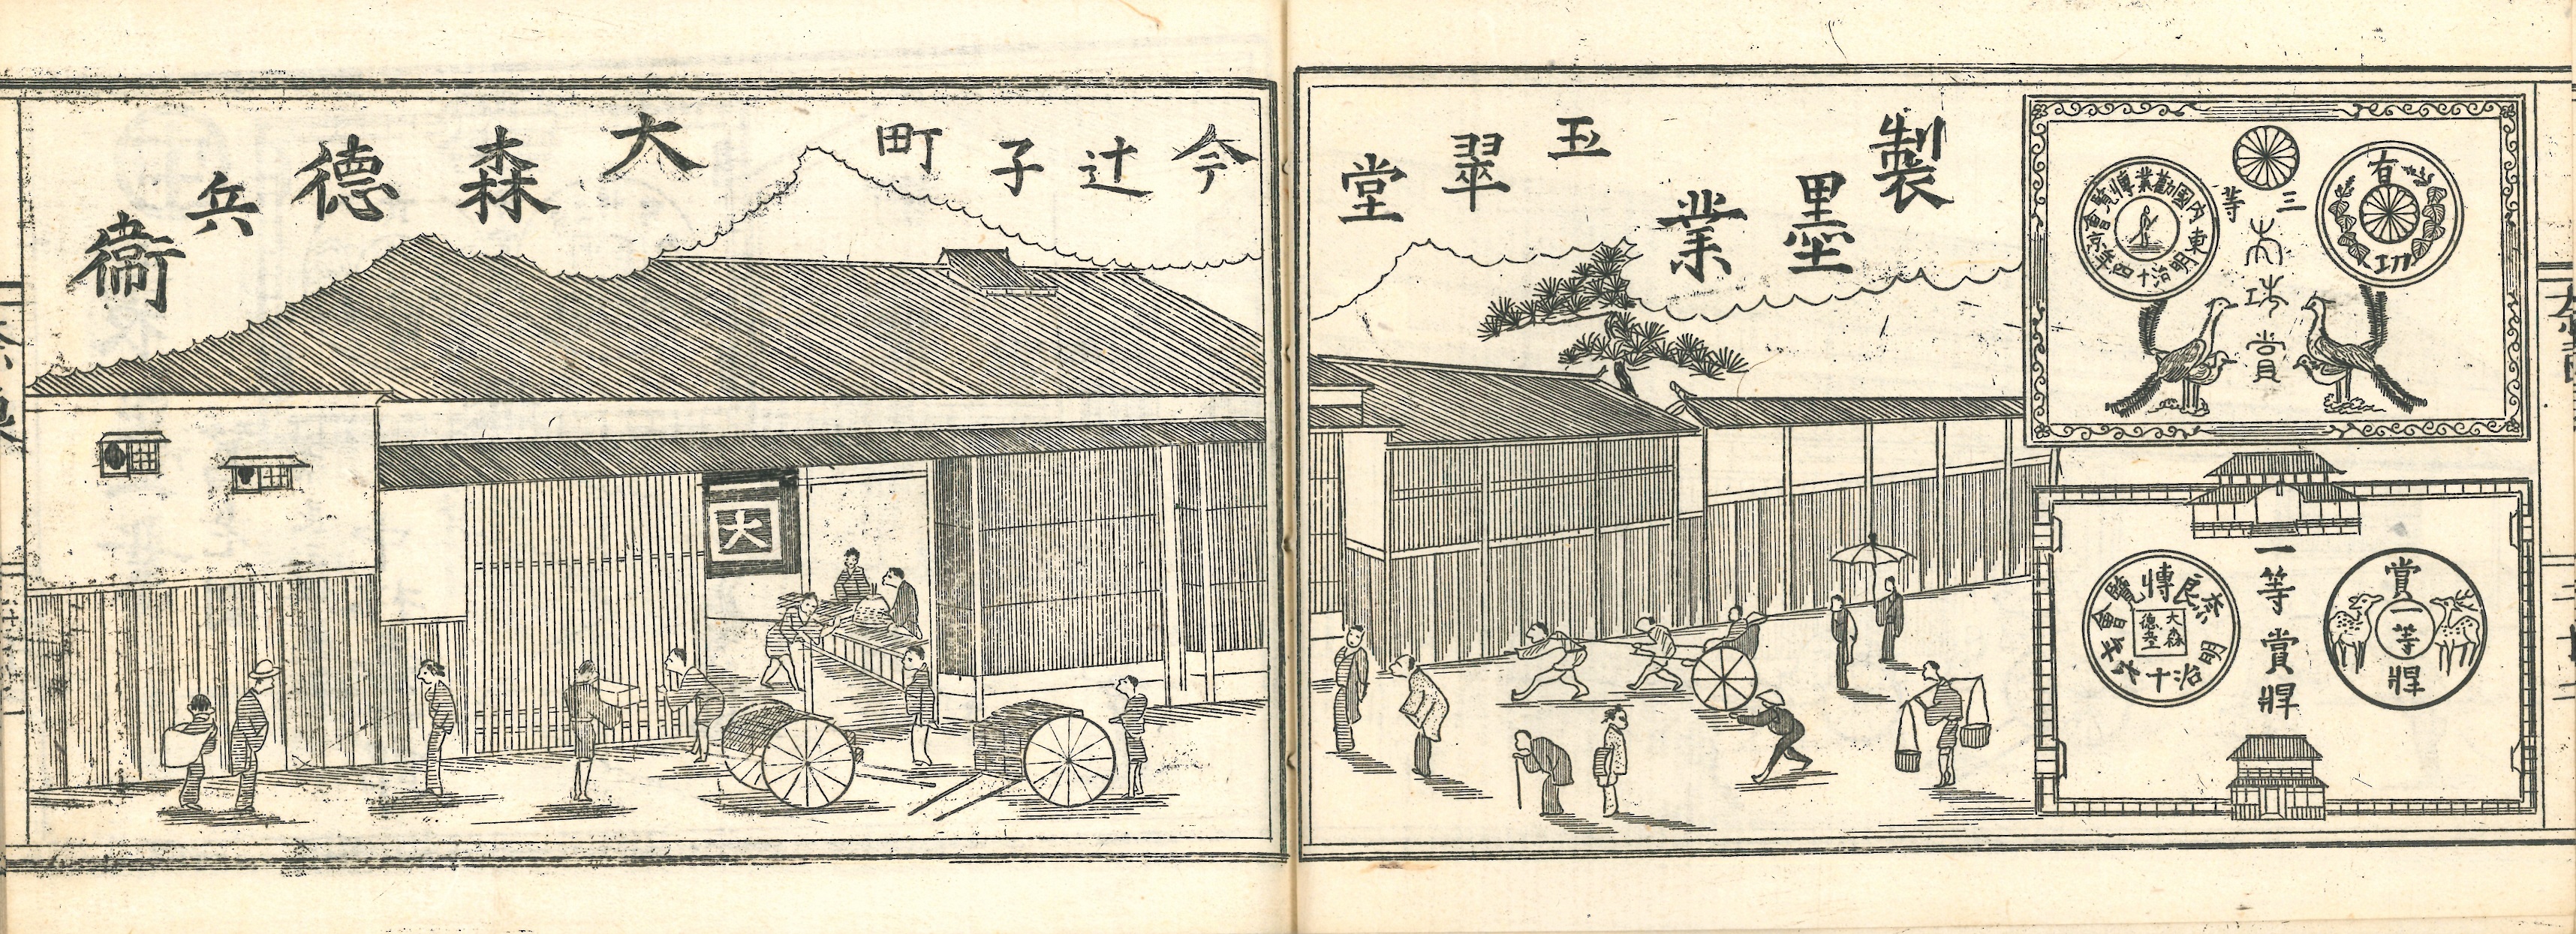 有功
三等
有功賞
内國勸業博覽會
東京
明治十四年
賞牌
一等
一等賞牌
奈良博覽會
明治十
大森
德兵
製墨業
玉翠堂
今辻子町
大森德兵衞
大